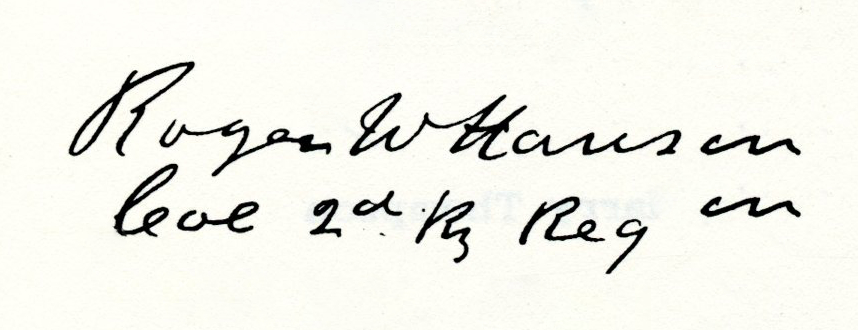 Roger W Hanson
Col 2d Ky Reg